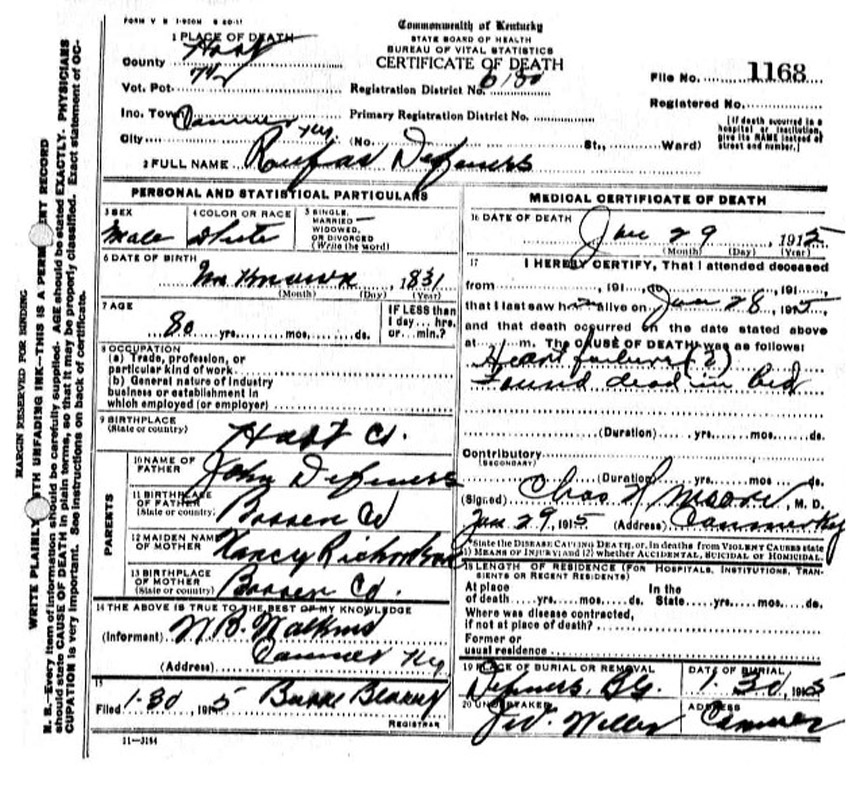 FORM V S 1-920M 8 20-11
Commonwealth of Kentucky
STATE BOARD OF HEALTH
BUREAU OF VITAL STATISTICS
CERTIFICATE OF DEATH
1 PLACE OF DEATH
County Hart
Vot. Pct.
Registration District No.
File No. 1168
Inc. Town Canmer Ky.
Primary Registration District No.
Registered No.
City (No. St., Ward)
[If death occurred in a hospital or institution, give its NAME instead of street and number.]
2 FULL NAME Rufas Defevers
PERSONAL AND STATISTICAL PARTICULARS
3 SEX
Male
4 COLOR OR RACE
White
5 SINGLE, MARRIED WIDOWED, OR DIVORCED (Write the word)
6 DATE OF BIRTH
Unknown , 1831
(Month) (Day) (Year)
7 AGE
80 yrs. mos. ds.
IF LESS than 1 day... hrs. or... min.?
8 OCCUPATION
(a) Trade, profession, or
particular kind of work
(b) General nature of industry
business or establishment in
which employed (or employer)
9 BIRTHPLACE
(State or country)
Hart Co.
PARENTS
10 NAME OF FATHER
John Defevers
11 BIRTHPLACE OF FATHER
(State or country)
Barren Co
12 MAIDEN NAME OF MOTHER
Nancy Richardson
13 BIRTHPLACE OF MOTHER
(State or country)
Barren Co.
14 THE ABOVE IS TRUE TO THE BEST OF MY KNOWLEDGE
(Informent) W.B. Watkins
(Address) Canmer Ky
15
Filed 1-30, 1915
REGISTRAR
11-3184
MEDICAL CERTIFICATE OF DEATH
16 DATE OF DEATH
Jan 29, 1915
(Month) (Day) (Year)
17 I HEREBY CERTIFY, That I attended deceased
from , 191 , to , 191 ,
that I last saw h alive on Jan 28, 1915,
and that death occurred on the date stated above
at m. The CAUSE OF DEATH was as follows:
Heart failure (?)
Found dead in bed
(Duration) yrs. mos. ds.
Contributory
(SECONDARY)
(Duration) yrs. mos. ds.
(Signed) Chas Moore, M. D.
Jan 29, 1915 (Address) Canmer Ky
*State the DISEASE CAUSING DEATH, or, in deaths from VIOLENT CAUSES state
1) MEANS OF INJURY; and (2) whether ACCIDENTAL, SUICIDAL OR HOMICIDAL.
18 LENGTH OF RESIDENCE (FOR HOSPITALS, INSTITUTIONS, TRANSIENTS OR RECENT RESIDENTS)
At place of death yrs. mos. ds.
In the State yrs. mos. ds.
Where was disease contracted,
if not at place of death?
Former or
usual residence
19 PLACE OF BURIAL OR REMOVAL
Defevers B.G.
DATE OF BURIAL
1-30, 1915
20 UNDERTAKER
ADDRESS
Canmer
MARGIN RESERVED FOR BINDING
WRITE PLAINLY WITH UNFADING INK—THIS IS A PERMANENT RECORD
N. B.—Every item of information should be carefully supplied. AGE should be stated EXACTLY. PHYSICIANS
should state CAUSE OF DEATH in plain terms, so that it may be properly classified. Exact statement of OC-
CUPATION is very important. See instructions on back of certificate.